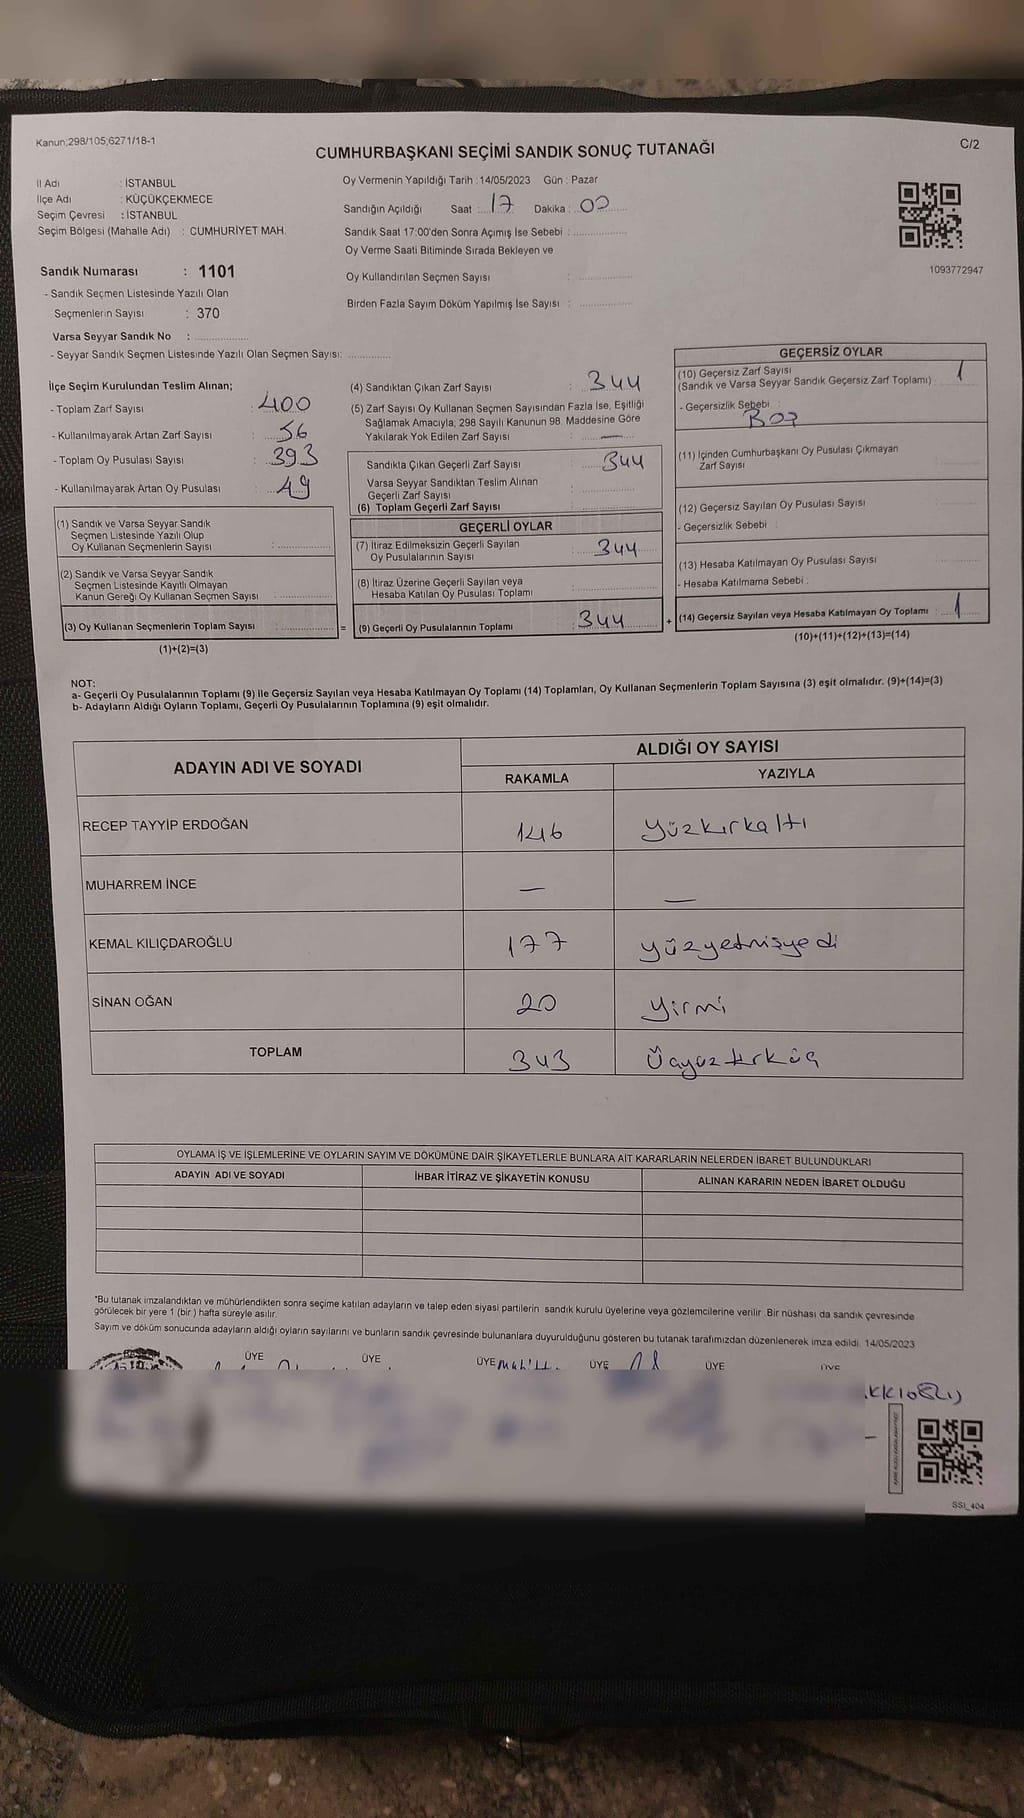 Kanun;298/105;6271/18-1
C/2
CUMHURBAŞKANI SEÇİMİ SANDIK SONUÇ TUTANAĞI
İl Adı : İSTANBUL
İlçe Adı : KÜÇÜKÇEKMECE
Seçim Çevresi : İSTANBUL
Seçim Bölgesi (Mahalle Adı) : CUMHURİYET MAH.
Sandık Numarası : 1101
- Sandık Seçmen Listesinde Yazılı Olan
Seçmenlerin Sayısı : 370
Varsa Seyyar Sandık No :
- Seyyar Sandık Seçmen Listesinde Yazılı Olan Seçmen Sayısı:
Oy Vermenin Yapıldığı Tarih :14/05/2023 Gün : Pazar
Sandığın Açıldığı Saat : 17 Dakika : 00
Sandık Saat 17:00'den Sonra Açımış İse Sebebi :
Oy Verme Saati Bitiminde Sırada Bekleyen ve
Oy Kullandırılan Seçmen Sayısı :
Birden Fazla Sayım Döküm Yapılmış İse Sayısı :
1093772947
İlçe Seçim Kurulundan Teslim Alınan;
- Toplam Zarf Sayısı : 400
- Kullanılmayarak Artan Zarf Sayısı : 56
- Toplam Oy Pusulası Sayısı : 393
- Kullanılmayarak Artan Oy Pusulası : 49
(1) Sandık ve Varsa Seyyar Sandık
Seçmen Listesinde Yazılı Olup
Oy Kullanan Seçmenlerin Sayısı :
(2) Sandık ve Varsa Seyyar Sandık
Seçmen Listesinde Kayıtlı Olmayan
Kanun Gereği Oy Kullanan Seçmen Sayısı :
(3) Oy Kullanan Seçmenlerin Toplam Sayısı :
(1)+(2)=(3)
(4) Sandıktan Çıkan Zarf Sayısı : 344
(5) Zarf Sayısı Oy Kullanan Seçmen Sayısından Fazla İse, Eşitliği
Sağlamak Amacıyla; 298 Sayılı Kanunun 98. Maddesine Göre
Yakılarak Yok Edilen Zarf Sayısı : —
Sandıkta Çıkan Geçerli Zarf Sayısı : 344
Varsa Seyyar Sandıktan Teslim Alınan
Geçerli Zarf Sayısı :
(6) Toplam Geçerli Zarf Sayısı :
GEÇERLİ OYLAR
(7) İtiraz Edilmeksizin Geçerli Sayılan
Oy Pusulalarının Sayısı : 344
(8) İtiraz Üzerine Geçerli Sayılan veya
Hesaba Katılan Oy Pusulası Toplamı :
= (9) Geçerli Oy Pusulalarının Toplamı : 344
GEÇERSİZ OYLAR
(10) Geçersiz Zarf Sayısı
(Sandık ve Varsa Seyyar Sandık Geçersiz Zarf Toplamı) : 1
- Geçersizlik Sebebi :
(11) İçinden Cumhurbaşkanı Oy Pusulası Çıkmayan
Zarf Sayısı :
(12) Geçersiz Sayılan Oy Pusulası Sayısı
- Geçersizlik Sebebi :
(13) Hesaba Katılmayan Oy Pusulası Sayısı
- Hesaba Katılmama Sebebi :
+ (14) Geçersiz Sayılan veya Hesaba Katılmayan Oy Toplamı : 1
(10)+(11)+(12)+(13)=(14)
NOT:
a- Geçerli Oy Pusulalarının Toplamı (9) ile Geçersiz Sayılan veya Hesaba Katılmayan Oy Toplamı (14) Toplamları, Oy Kullanan Seçmenlerin Toplam Sayısına (3) eşit olmalıdır. (9)+(14)=(3)
b- Adayların Aldığı Oyların Toplamı, Geçerli Oy Pusulalarının Toplamına (9) eşit olmalıdır.
ADAYIN ADI VE SOYADI
ALDIĞI OY SAYISI
RAKAMLA YAZIYLA
RECEP TAYYİP ERDOĞAN 146 yüzkırkaltı
MUHARREM İNCE — —
KEMAL KILIÇDAROĞLU 177 yüzyetmişyedi
SİNAN OĞAN 20 yirmi
TOPLAM 343 Üçyüzkırküç
OYLAMA İŞ VE İŞLEMLERİNE VE OYLARIN SAYIM VE DÖKÜMÜNE DAİR ŞİKAYETLERLE BUNLARA AİT KARARLARIN NELERDEN İBARET BULUNDUKLARI
ADAYIN ADI VE SOYADI İHBAR İTİRAZ VE ŞİKAYETİN KONUSU ALINAN KARARIN NEDEN İBARET OLDUĞU
*Bu tutanak imzalandıktan ve mühürlendikten sonra seçime katılan adayların ve talep eden siyasi partilerin sandık kurulu üyelerine veya gözlemcilerine verilir. Bir nüshası da sandık çevresinde
görülecek bir yere 1 (bir ) hafta süreyle asılır.
Sayım ve döküm sonucunda adayların aldığı oyların sayılarını ve bunların sandık çevresinde bulunanlara duyurulduğunu gösteren bu tutanak tarafımızdan düzenlenerek imza edildi. 14/05/2023
ÜYE ÜYE ÜYE ÜYE ÜYE ÜYE
SSI_404